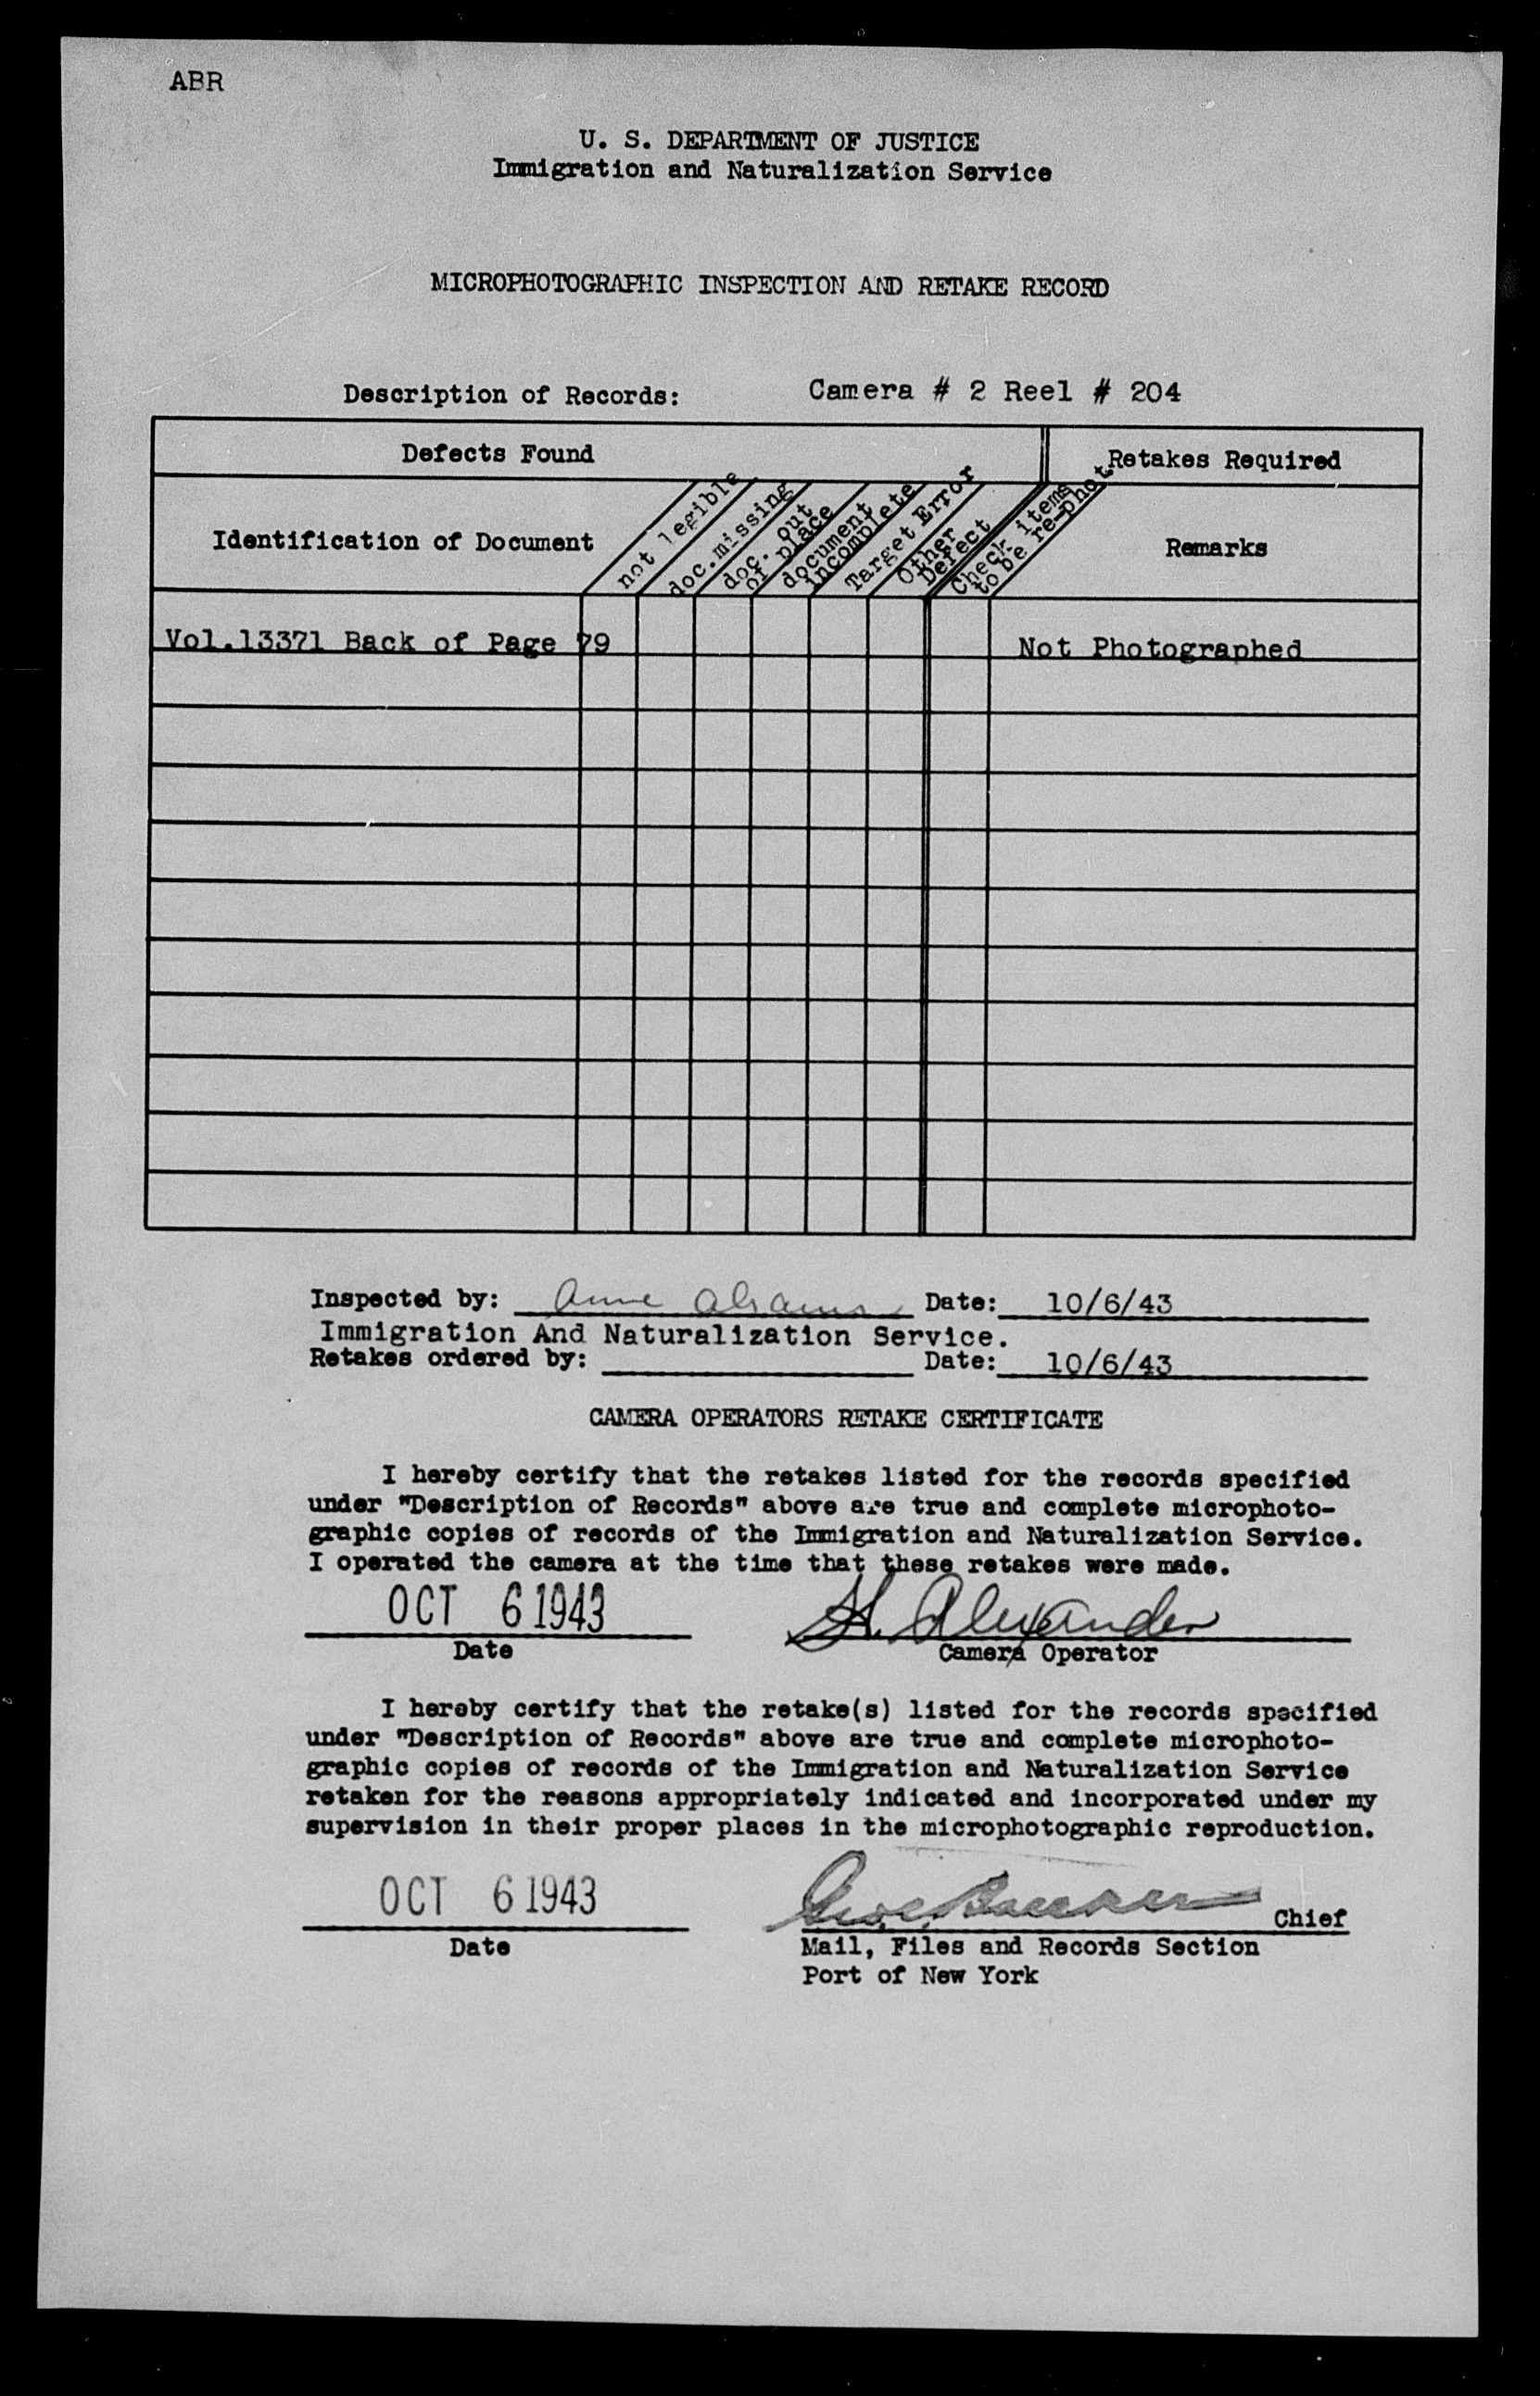 ABR
U. S. DEPARTMENT OF JUSTICE
Immigration and Naturalization Service
MICROPHOTOGRAPHIC INSPECTION AND RETAKE RECORD
Description of Records: Camera # 2 Reel # 204
Defects Found
Retakes Required
Identification of Document
not legible
doc.missing
doc. out
of place
document
incomplete
Target Error
Other
Defect
Check items
to be re-phot.
Remarks
Vol.13371 Back of Page 79 Not Photographed
Inspected by: Anne Abrams Date: 10/6/43
Immigration And Naturalization Service.
Retakes ordered by: Date: 10/6/43
CAMERA OPERATORS RETAKE CERTIFICATE
I hereby certify that the retakes listed for the records specified
under "Description of Records" above are true and complete microphoto-
graphic copies of records of the Immigration and Naturalization Service.
I operated the camera at the time that these retakes were made.
OCT 6 1943 H. Alexander
Date Camera Operator
I hereby certify that the retake(s) listed for the records specified
under "Description of Records" above are true and complete microphoto-
graphic copies of records of the Immigration and Naturalization Service
retaken for the reasons appropriately indicated and incorporated under my
supervision in their proper places in the microphotographic reproduction.
OCT 6 1943 Chief
Date Mail, Files and Records Section
Port of New York